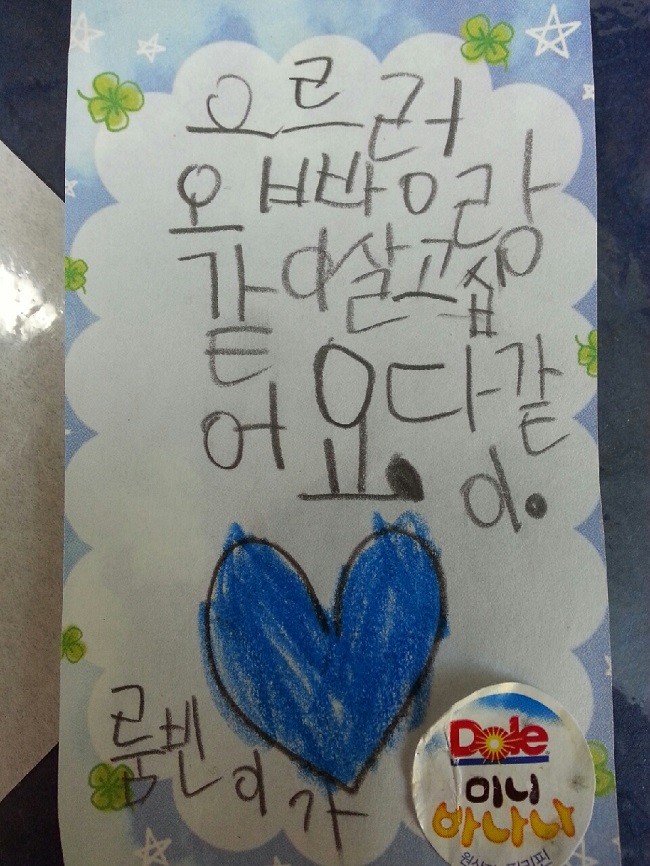 오르러
오빠ㅇ랑
같이살고십
어요.다같
이.
룸벤이가
Dole
미니
바나나